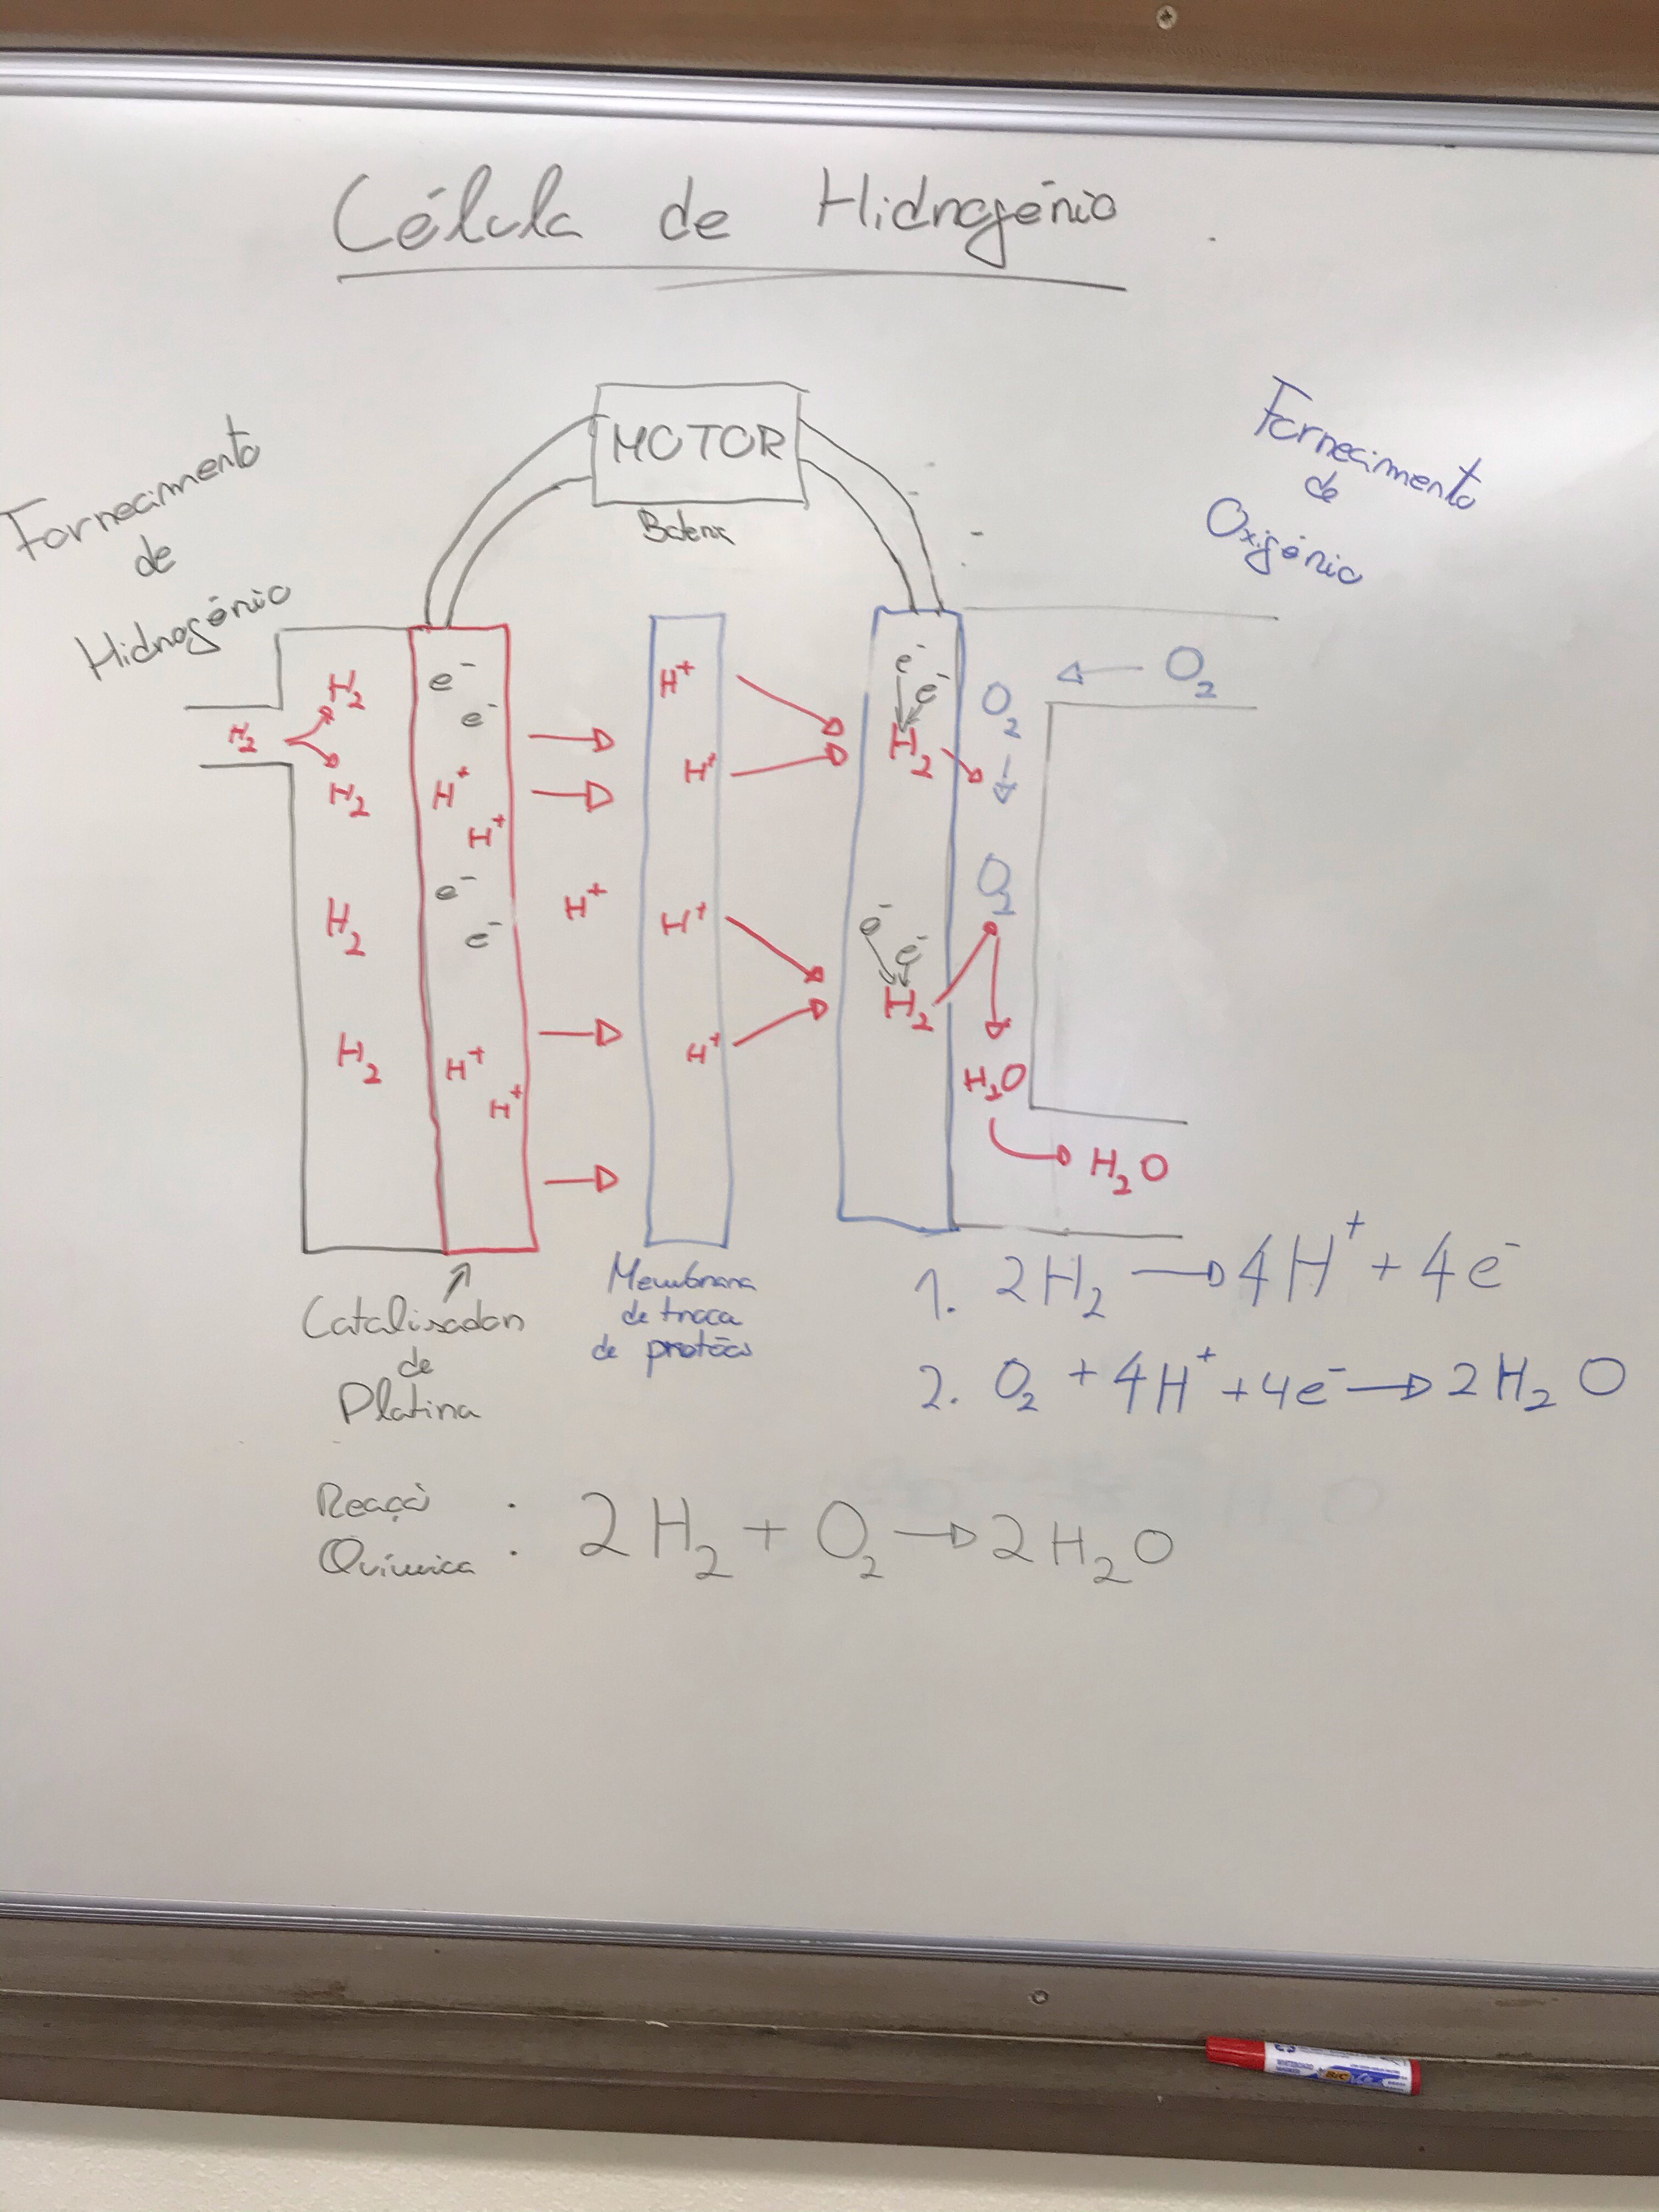 Célula de Hidrogénio
MOTOR
Bateria
Fornecimento
de
Hidrogénio
Fornecimento
de
Oxigénio
H₂
H₂
H₂
H₂
H₂
e⁻
e⁻
H⁺
H⁺
e⁻
e⁻
H⁺
H⁺
H⁺
H⁺
H⁺
H⁺
H⁺
e⁻
e⁻
H₂
e⁻
e⁻
H₂
O₂
O₂
O₂
H₂O
H₂O
Catalisador
de
Platina
Membrana
de troca
de protões
1. 2H₂ → 4H⁺ + 4e⁻
2. O₂ + 4H⁺ + 4e⁻ → 2H₂O
Reação
Química : 2H₂ + O₂ → 2H₂O
BIC